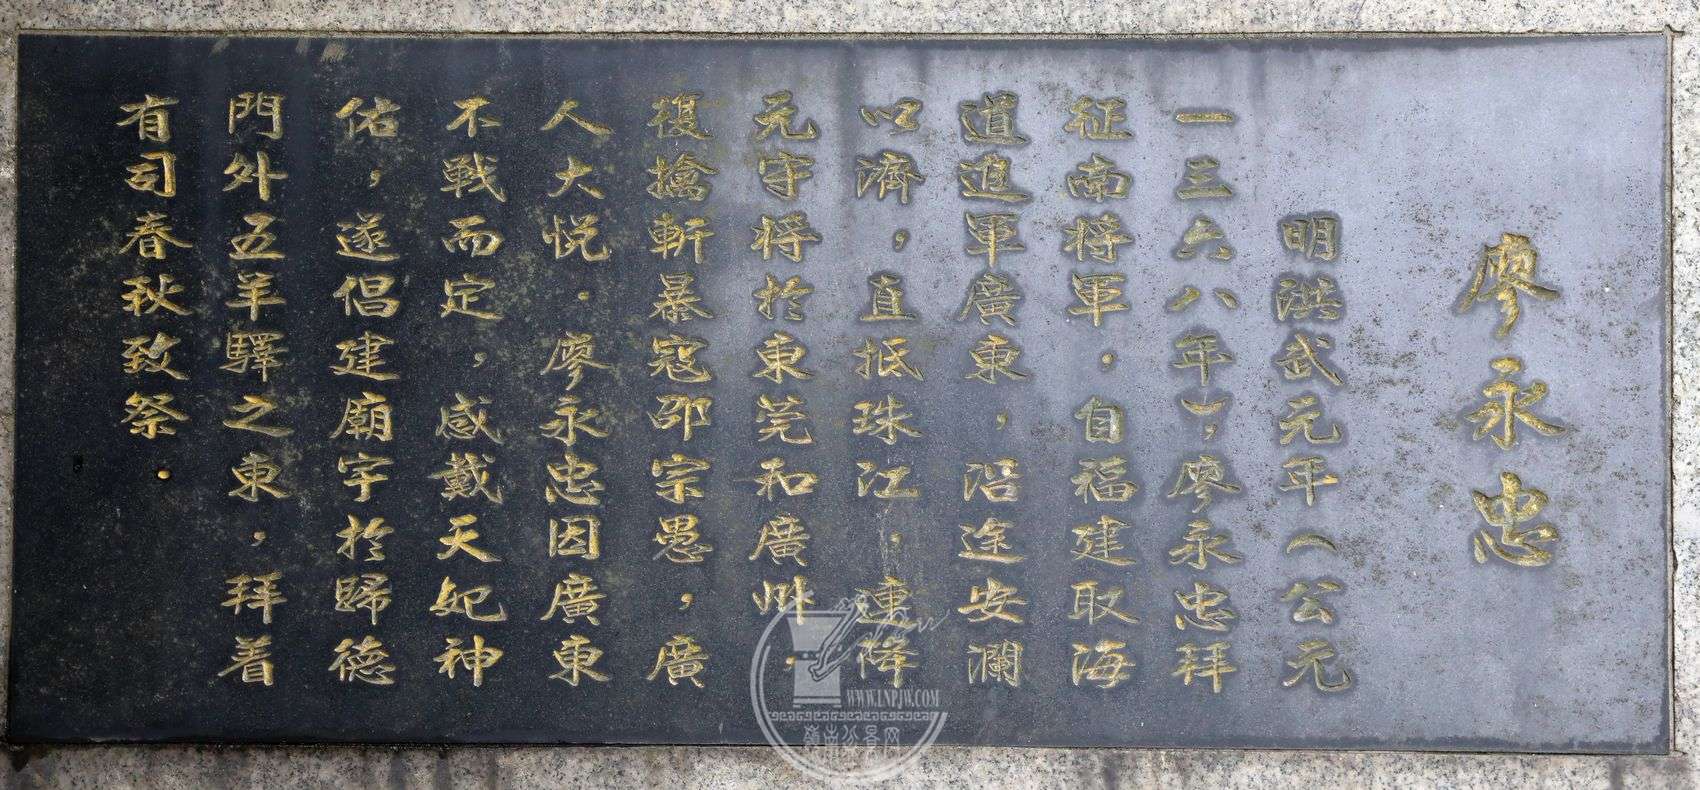 廖永忠
明洪武元年(公元
一三六八年),廖永忠拜
征南將軍,自福建取海
道進軍廣東,沿途安瀾
以濟,直抵珠江,連降
元守將於東莞和廣州.
復擒斬暴寇邵宗愚,廣
人大悦.廖永忠因廣東
不戰而定,感戴天妃神
佑,遂倡建廟宇於歸德
門外五羊驛之東,拜着
有司春秋致祭.
WWW.LNPJW.COM